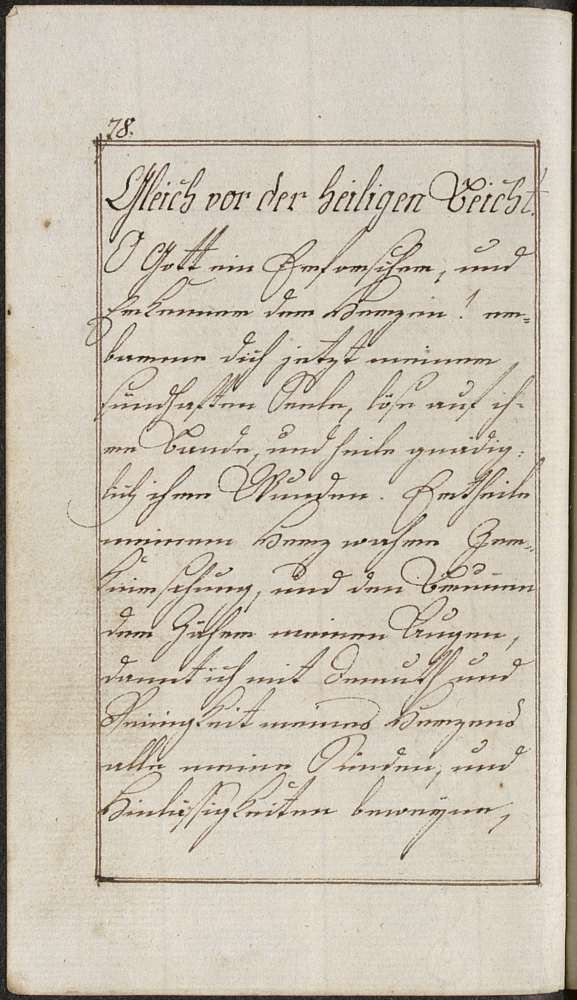 78.
Gleich vor der heiligen Beicht.
O Gott ein Erforscher, und
Erkenner der Herzen! er-
barme dich jetzt meiner
sündhaften Seele, löse auf ih-
re Bande, und heile gnädig-
lich ihre Wunden. Ertheile
meinem Herz wahre Zer-
knirschung, und den Brunnen
der Zäher meinen Augen,
damit ich mit Demuth und
Reinigkeit meines Herzens
alle meine Sünden, und
Hinläßigkeiten beweyne,